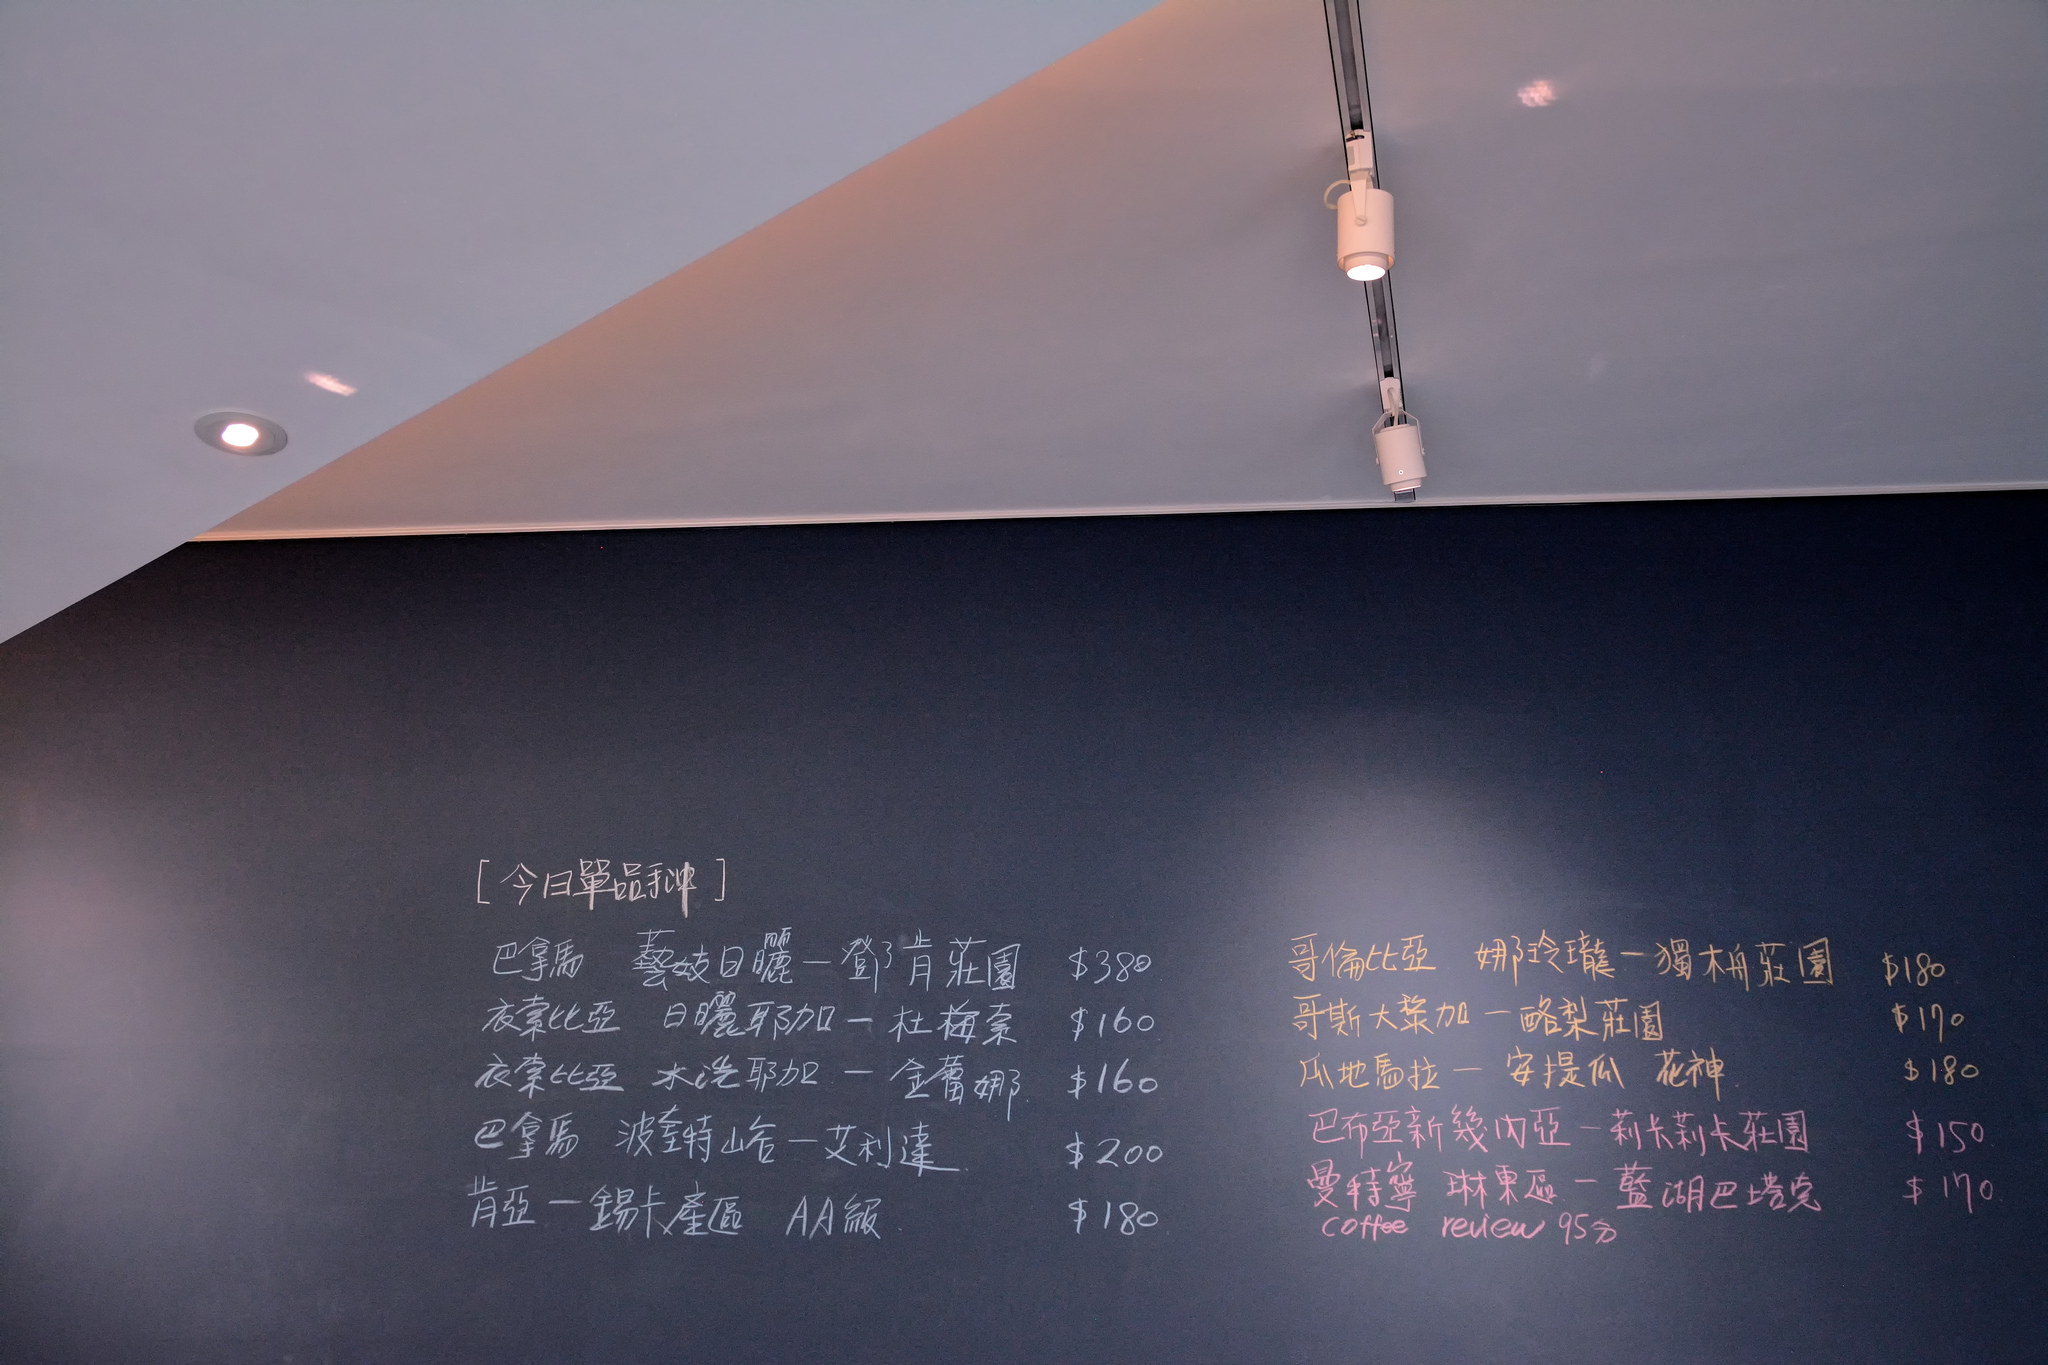 [今日單品手沖]
巴拿馬 藝妓日曬—鄧肯莊園 $380
衣索比亞 日曬耶加—杜梅索 $160
衣索比亞 水洗耶加—金蕾娜 $160
巴拿馬 波奎特山谷—艾利達 $200
肯亞—錫卡產區 AA級 $180
哥倫比亞 娜玲瓏—獨木舟莊園 $180
哥斯大黎加—酪梨莊園 $170
瓜地馬拉—安提瓜 花神 $180
巴布亞新幾內亞—莉卡莉卡莊園 $150
曼特寧 琳東區—藍湖巴塔克 $170
coffee review 95分